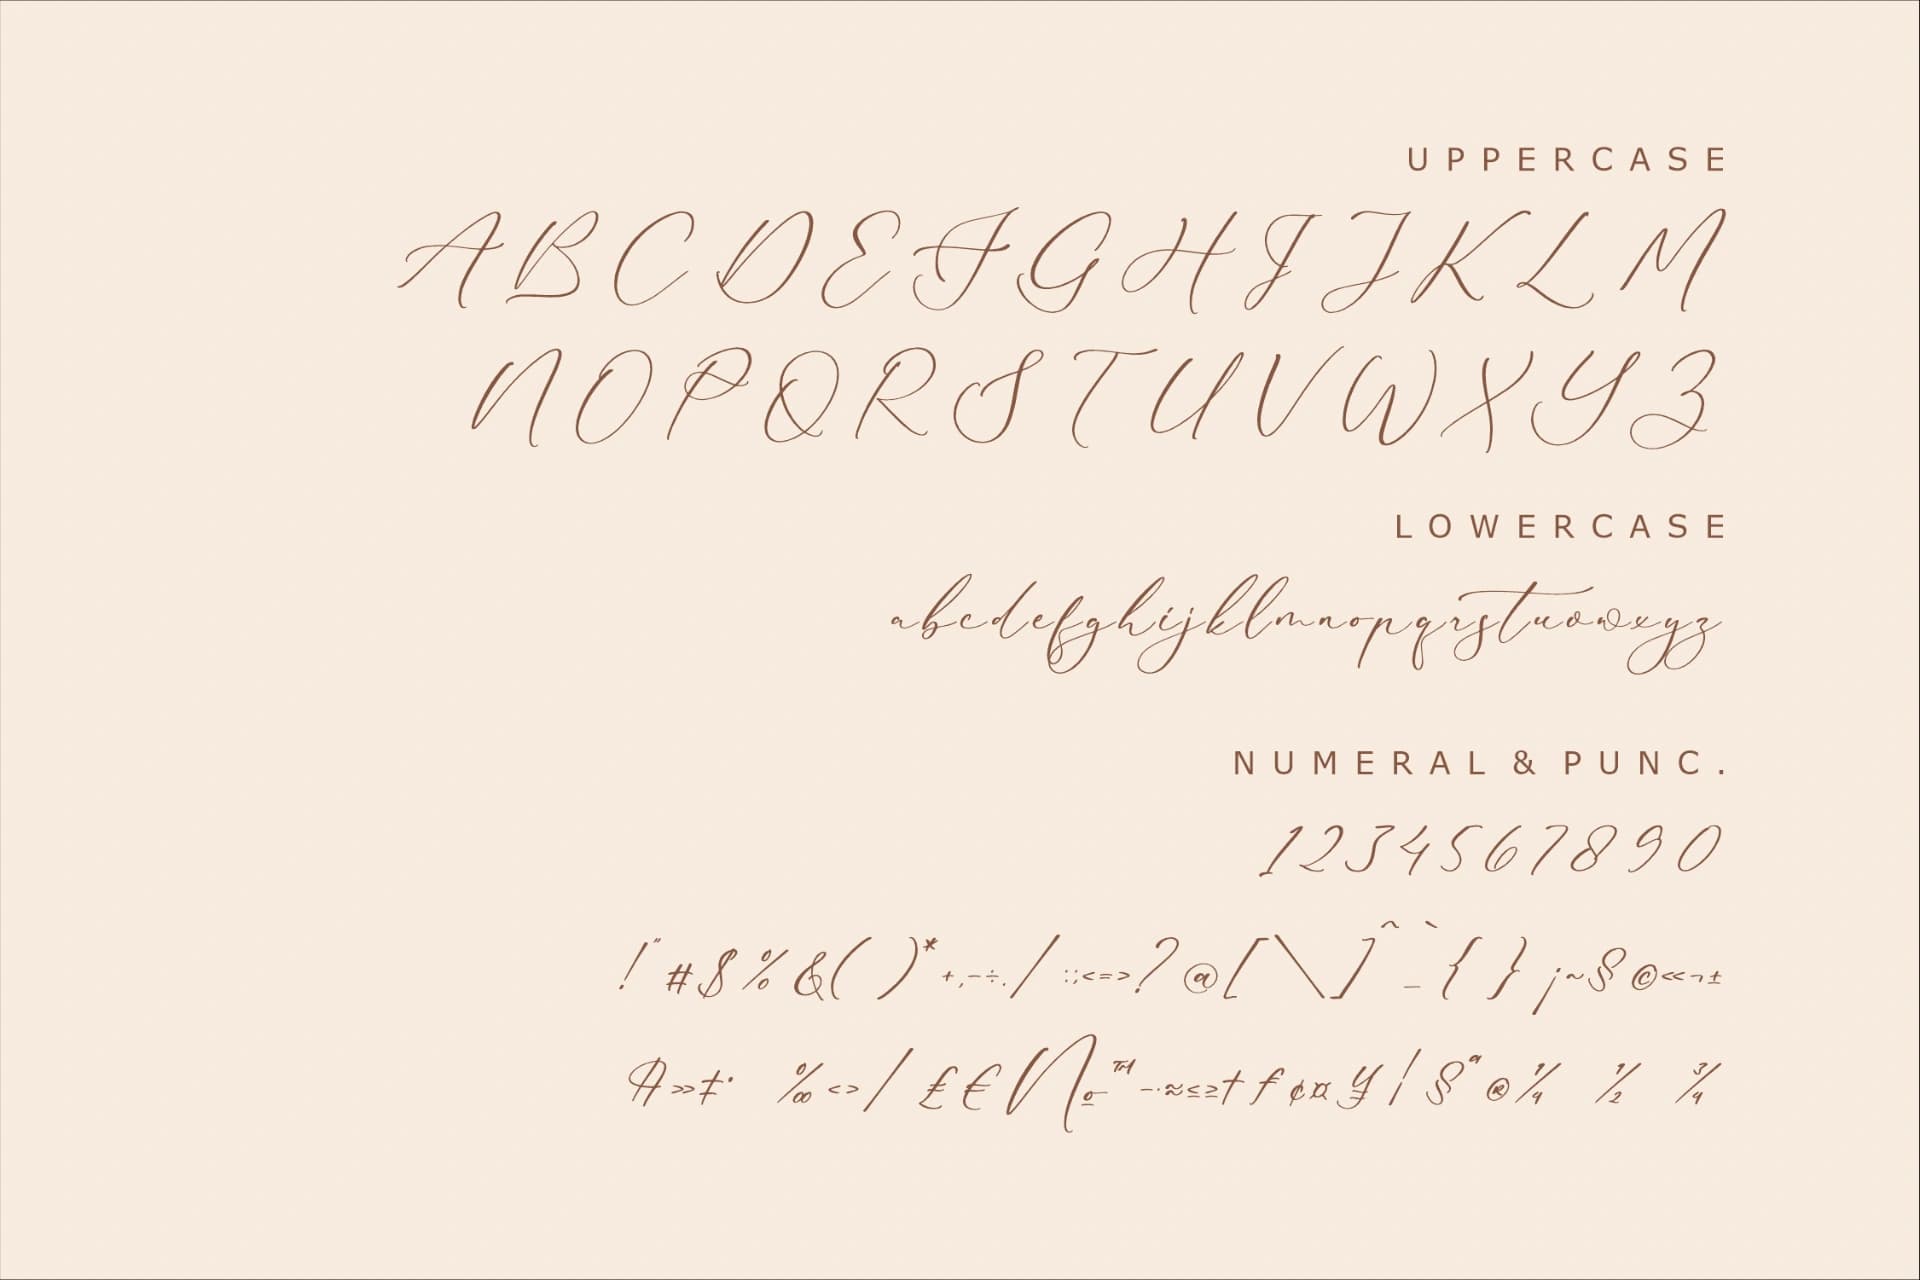 UPPERCASE
A B C D E F G H I J K L M
N O P Q R S T U V W X Y Z
LOWERCASE
abcdefghijklmnopqrstuvwxyz
NUMERAL & PUNC.
1 2 3 4 5 6 7 8 9 0
! " # $ % & ( ) * + , - ÷ . / : ; < = > ? @ [ \ ] ^ _ ` { } ¡ ~ § © « ¬ ±
» ‡ · ‰ < > / £ € № ™ – · ≈ ≤ ≥ † ƒ ¢ ¤ ¥ ¦ § ª ® ¼ ½ ¾